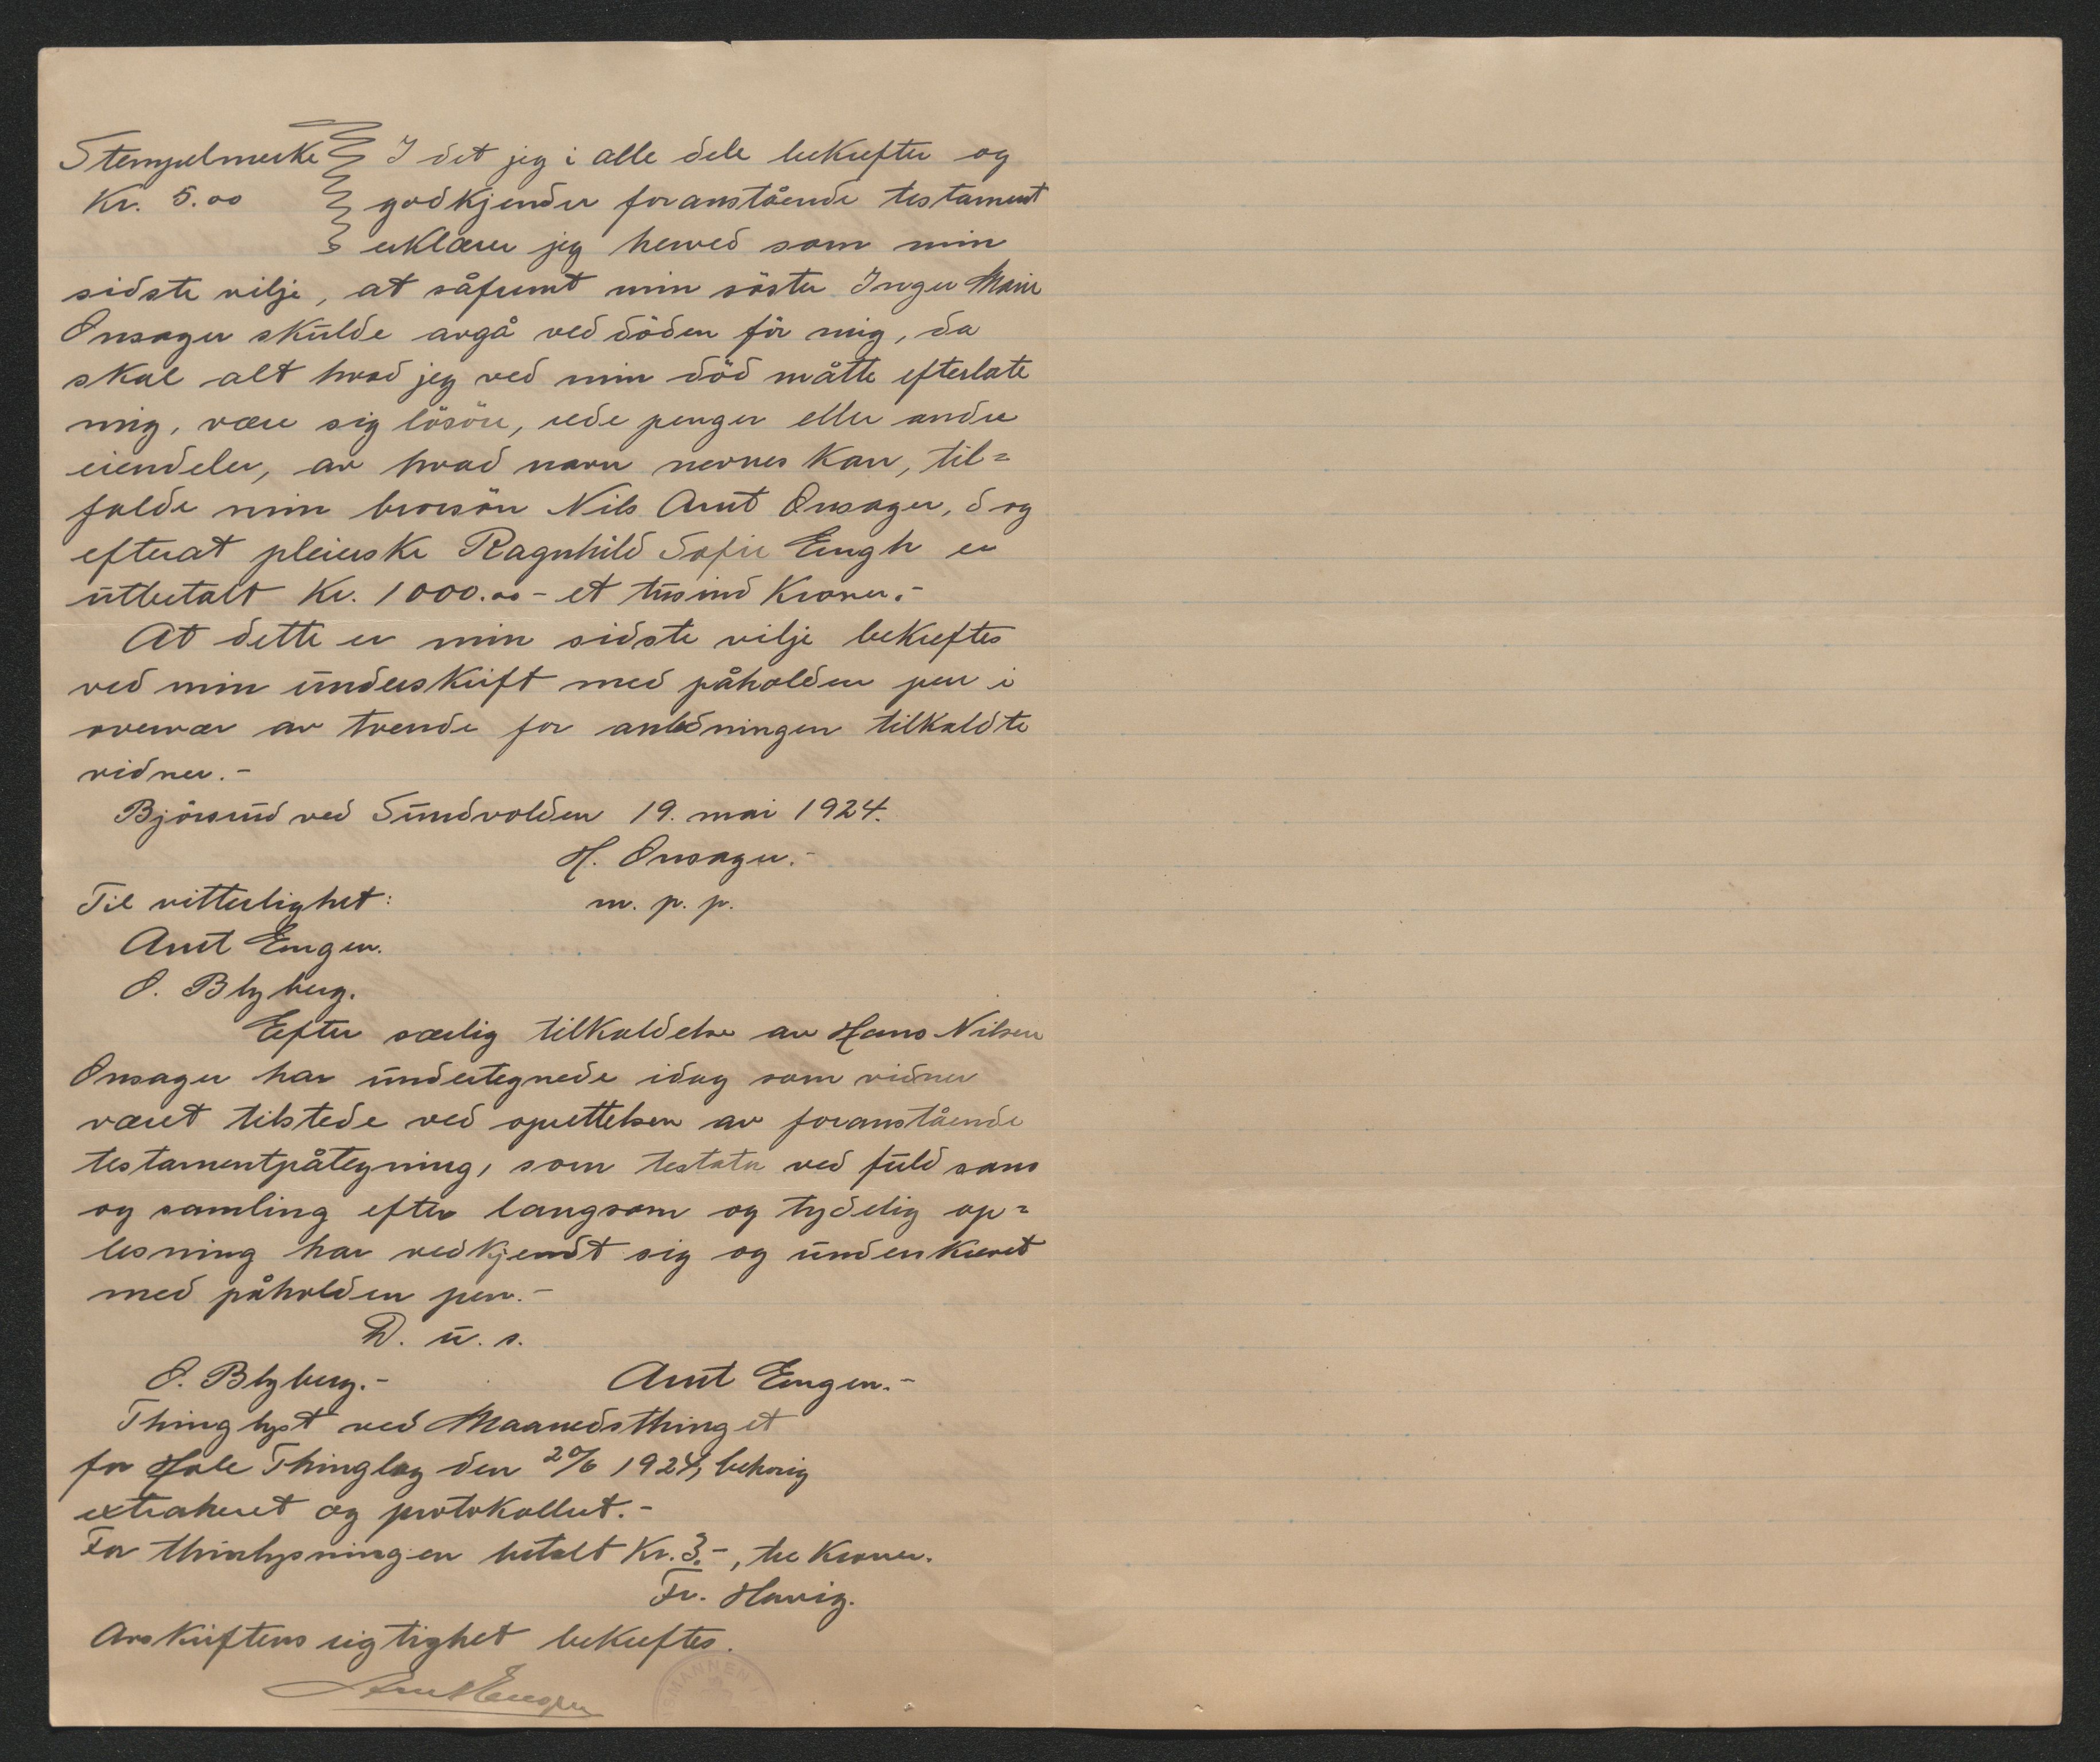 Stempelmerke I det jeg i alle dele bekræfter og
Kr. 5.00 godkjender foranstående testament
erklærer jeg herved som min
sidste vilje, at såfremt min söster Inger Marie
Onsager skulde avgå ved döden för mig, da
skal alt hvad jeg ved min död måtte efterlate
mig, være sig lösöre, rede penger eller andre
eiendeler, av hvad navn nevnes kan, til=
falde min brorsön Nils Arnt Onsager, dog
efterat pleierske Ragnhild Sofie Engh er
utbetalt Kr. 1000.00 - et tusind Kroner.-
At dette er min sidste vilje bekreftes
ved min underskrift med påholden pen i
overvær av tvende for anledningen tilkaldte
vidner.-
Björsund ved Sundvolden 19. mai 1924.
H. Onsager.-
Til vitterlighet: m. p. p.
Arnt Engen.
O. Blyberg.
Efter særlig tilkaldelse av Hans Nilsen
Onsager har undertegnede idag som vidner
været tilstede ved oprettelsen av foranstående
testamentpåtegning, som testator ved fuld sans
og samling efter langsom og tydelig op=
lesning har vedkjendt sig og underskrevet
med påholden pen.-
D. u. s.
O. Blyberg.- Arnt Engen.-
Thinglyst ved Maanedsthinget
for Hole Thinglag den 20/6 1924, behørig
extraheret og protokolleret.-
For thinlysningen betalt Kr. 3.-, tre Kroner.
Fr. Harvig.
Avskriftens rigtighet bekreftes.
Arnt Engen
SMANNEN I